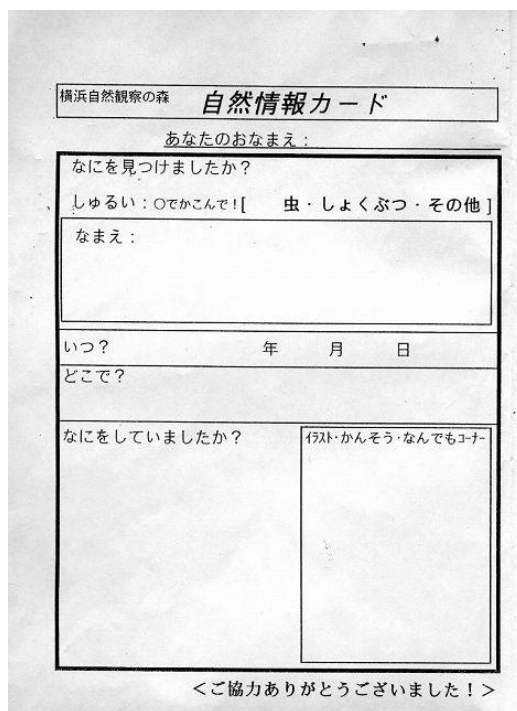 横浜自然観察の森 自然情報カード
あなたのおなまえ：
なにを見つけましたか？
しゅるい：○でかこんで！[　虫・しょくぶつ・その他]
なまえ：
いつ？　年　月　日
どこで？
なにをしていましたか？
ｲﾗｽﾄ･かんそう･なんでもｺｰﾅｰ
＜ご協力ありがとうございました！＞